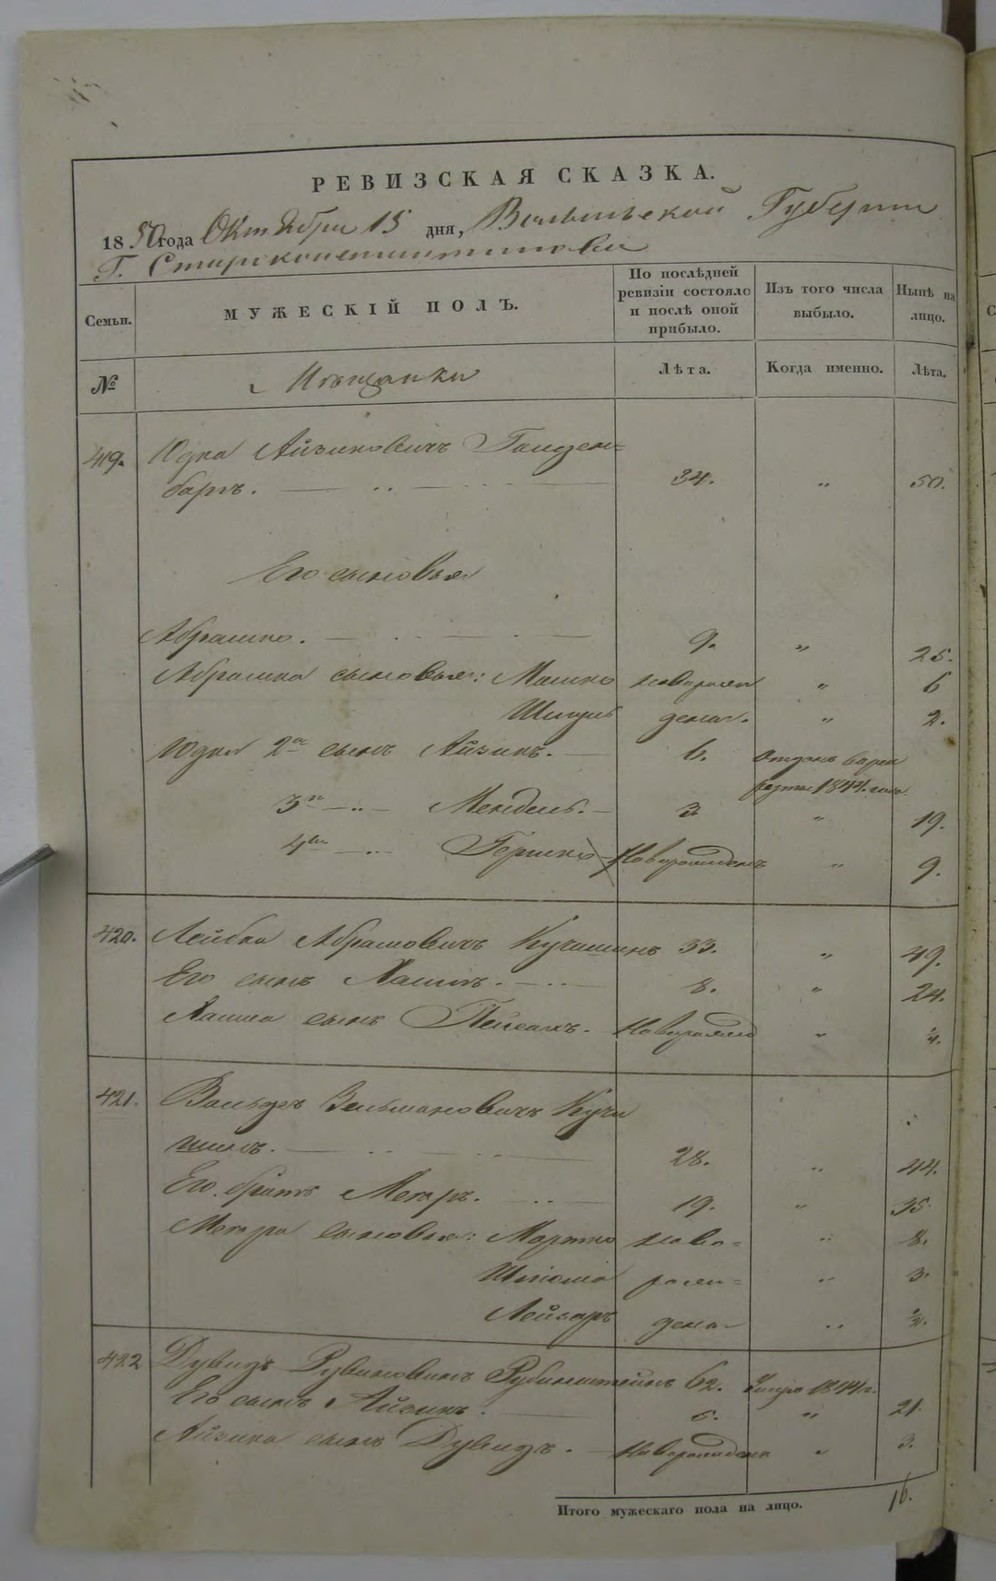 РЕВИЗСКАЯ СКАЗКА.
1850 года Октября 15 дня, Волынской Губернии
Г. Староконстантинова
Семьи.
МУЖЕСКІЙ ПОЛЪ.
По послѣдней ревизіи состояло и послѣ оной прибыло.
Изъ того числа выбыло.
Нынѣ на лицо.
№
Мѣщанки
Лѣта.
Когда именно.
Лѣта.
419. Юдка Айзиковичъ
баръ. 34. „ 50.
Его сыновья
Абрашко. 9. „ 25.
Абрашка сыновья: Машко новорож „ 6
Шмуль дена. „ 2.
Юдки 2й сынъ Айзикъ. 6. отданъ в
1844. года
3й — Мендель. 3 „ 19.
4й — Гершко Новорожденъ „ 9.
420. Лейбка Абрамовичъ Кучишинъ 33. „ 49.
Его сынъ Хаимъ. 8. „ 24.
Хаима сынъ Пейсахъ. Новорожд „
421. Вольфъ Зельмановичъ Кучи
шинъ. 28. „ 44.
Его братъ Мееръ. 19. „ 35.
Меера сыновья: Мортко ново= „ 8.
Шлома рож= „ 3.
Лейзаръ дена „
422 Дувидъ Рувиновичъ Рубинштейнъ 62. Умеръ 1844 г.
Его сынъ Айзикъ. 5. „ 21.
Айзика сынъ Дувидъ. Новорожденъ „ 3.
Итого мужескаго пола на лицо. 16.